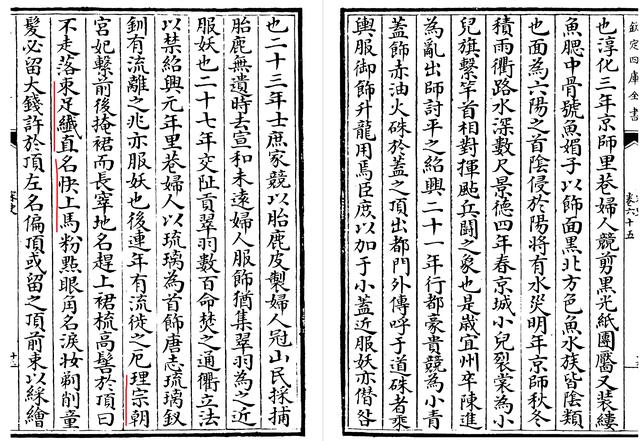 欽定四庫全書
卷六十五
也淳化三年京師里巷婦人競剪黑光紙團靨又装縷
魚腮中骨號魚媚子以飾面黑北方色魚水族皆陰類
也面為六陽之首陰侵於陽將有水災明年京師秋冬
積雨衢路水深數尺景德四年春京城小兒裂裳為小
兒旗繫竿首相對揮颭兵鬬之象也是嵗宜州卒陳進
為亂出師討平之紹興二十一年行都豪貴競為小青
蓋飾赤油火珠於蓋之頂出都門外傳呼于道珠者乘
輿服御飾升龍用焉臣庶以加于小蓋近服妖亦僭咎
也二十三年士庶家競以胎鹿皮製婦人冠山民採捕
胎鹿無遺時去宣和未遠婦人服飾猶集翠羽為之近
服妖也二十七年交阯貢翠羽數百命焚之通衢立法
以禁紹興元年里巷婦人以琉璃為首飾唐志琉璃釵
釧有流離之兆亦服妖也後連年有流徙之厄理宗朝
宮妃繫前後掩裙而長窣地名趕上裙梳高髻於頂曰
不走落束足纖直名快上馬粉點眼角名淚妝剃削童
髮必留大錢許於頂左名偏頂或留之頂前束以綵繒